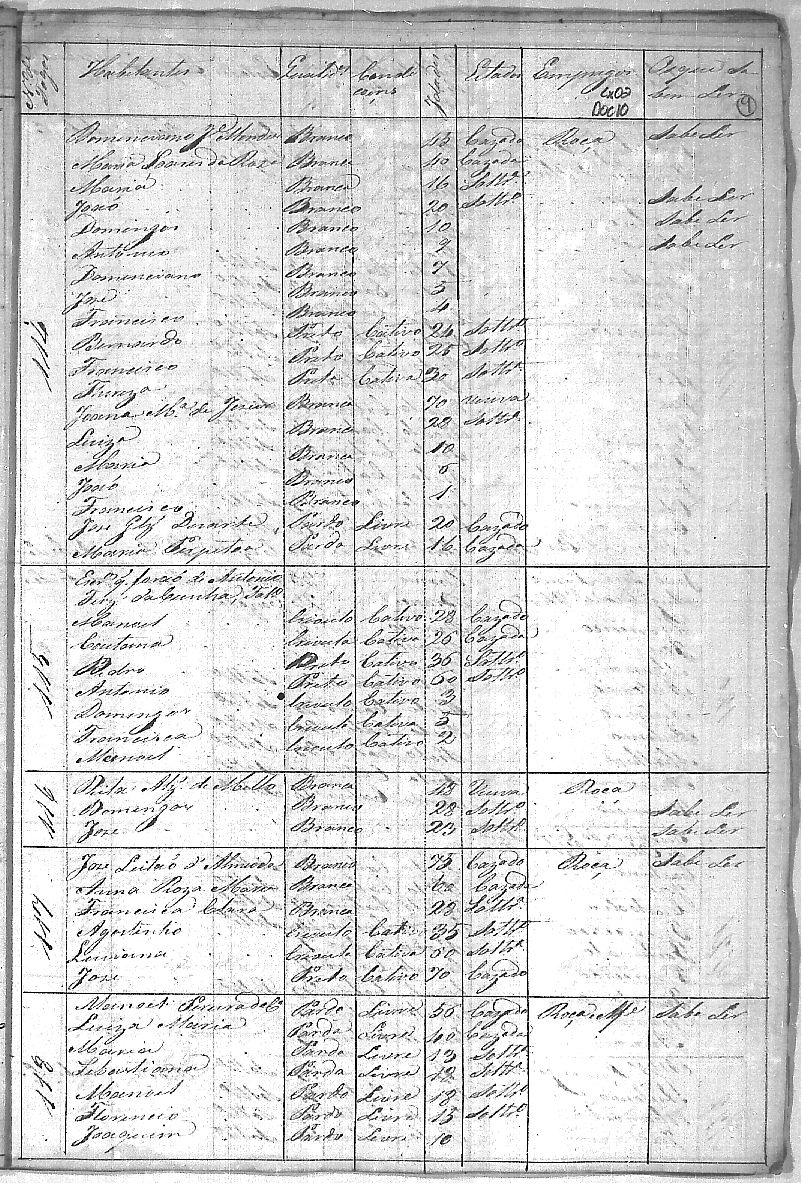 Habitantes Qualid.es Condi Idades Estados Empregos Os que Sa
coens bem Ler
LX02
DOC10
9
Branco 43 Cazado Roça Sabe Ler
Maria Soares da Roza Branca 40 Cazada
Maria Branca 16 Soltr.a
João Branco 20 Soltr.o Sabe Ler
Domingos Branco 10 Sabe Ler
Antonio Branco 9 Sabe Ler
Branco 7
Jose Branco 5
Francisco Branco 4
Bernardo Preto Cativo 24 Soltr.o
Francisco Preto Cativo 25 Soltr.o
Tereza Preta Cativa 30 Soltr.a
Joanna M.a de Branca 70 Veuva
Luiza Branca 28 Soltr.a
Maria Branca 10
João Branco
Francisco Branco 1
Jose Duarte Pardo Livre 20 Cazado
Maria Parda Livre 16 Cazada
de Antonio
da Cunha
Manoel Crioulo Cativo 28 Cazado
Caetana Crioula Cativa 26 Cazada
Pedro Preto Cativo 36 Soltr.o
Antonio Preto Cativo 60 Soltr.o
Domingos Crioulo Cativo 3
Francisca Crioula Cativa 5
Manoel Crioulo Cativo 2
Rita de Mello Branca 48 Veuva Roça
Domingos Branco 28 Soltr.o Sabe Ler
Jose Branco 23 Soltr.o Sabe Ler
Jose Leitaó d'Almeida Branco 73 Cazado Roça Sabe Ler
Anna Roza Maria Branca 60 Cazada
Francisca Clara Branca 28 Soltr.a
Agostinho Crioulo Cativo 35 Soltr.o
Luciana Crioula Cativa 50 Soltr.a
Jose Preto Cativo 70 Cazado
Manoel Pereira da C.a Pardo Livre 50 Cazado Roça Sabe Ler
Luiza Maria Parda Livre 40 Cazada
Maria Parda Livre 13 Soltr.a
Sebastiana Parda Livre 12 Soltr.a
Manoel Pardo Livre 18 Soltr.o
Florencio Pardo Livre 15 Soltr.o
Joaquim Pardo Livre 10